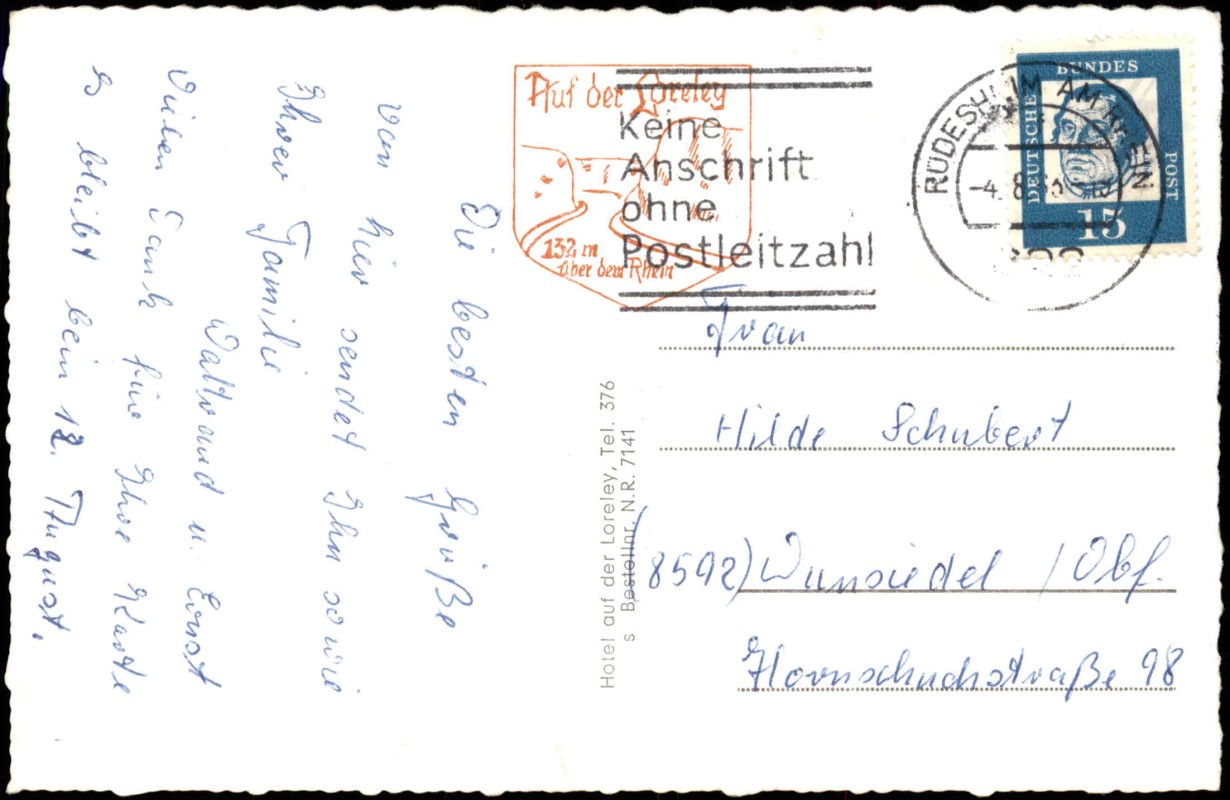 Die besten Grüße
von hier sendet Ihn sowie
Ihrer Familie
Waltraud u. Ernst
Vielen Dank für Ihre Karte
es bleibt beim 12. August.
Auf der Loreley
132 m
über dem Rhein
Keine
Anschrift
ohne
Postleitzahl
RÜDESHEIM AM RHEIN
-4. 8.
DEUTSCHE BUNDES POST
15
Frau
Hilde Schubert
(8592) Wunsiedel / Obf.
Hornschuchstraße 98
Hotel auf der Loreley, Tel. 376
s Bestellnr. N.R. 7141